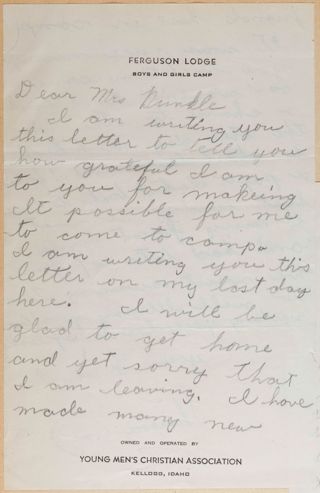 FERGUSON LODGE
BOYS AND GIRLS CAMP
Dear Mrs Rundle
I am writing you
this letter to tell you
how grateful I am
to you for makeing
It possible for me
to come to camp.
I am writing you this
letter on my last day
here. I will be
glad to get home
and yet sorry that
I am leaving. I have
made many new
OWNED AND OPERATED BY
YOUNG MEN'S CHRISTIAN ASSOCIATION
KELLOGG, IDAHO